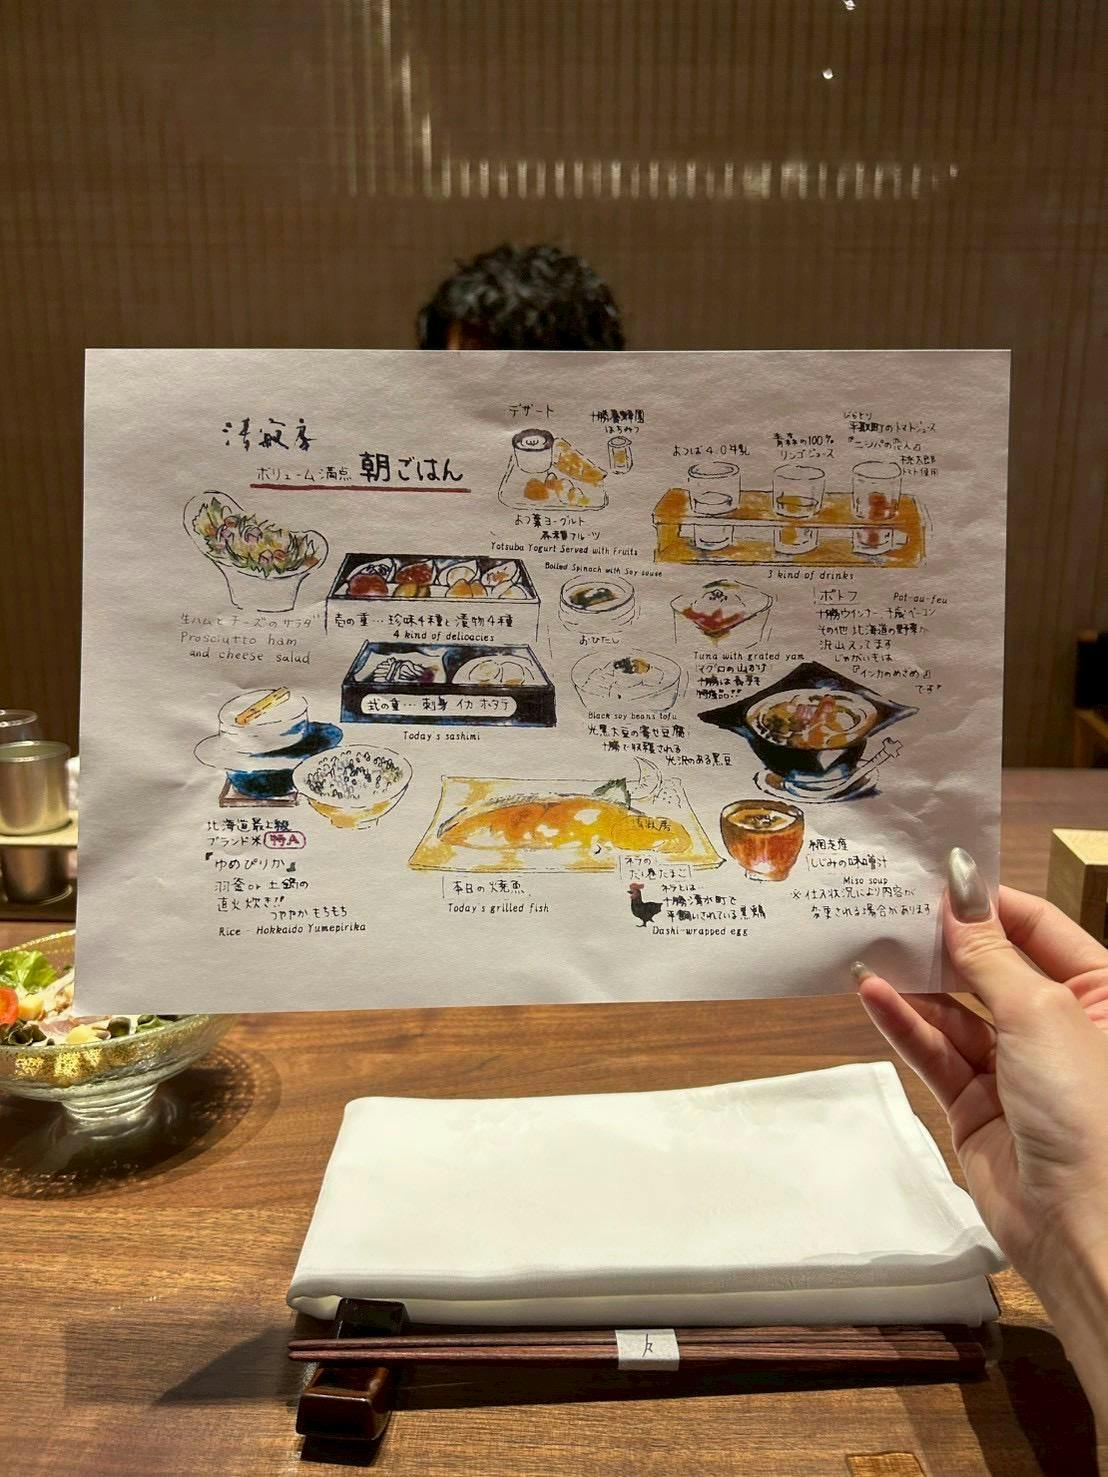 清寂房
ボリューム満点 朝ごはん
デザート
十勝養蜂園
はちみつ
よつ葉ヨーグルト
フルーツ
Yotsuba Yogurt Served with Fruits
よつば4.0牛乳
青森の100%
リンゴジュース
びらとり
平取町のトマトジュース
『ニシパの恋人』
桃太郎
トマト使用
3 kind of drinks
生ハムとチーズのサラダ
Prosciutto ham
and cheese salad
壱の重…珍味4種と漬物4種
4 kind of delicacies
弐の重…刺身 イカ ホタテ
Today's sashimi
Boiled Spinach with Soy souse
おひたし
Tuna with grated yam
マグロの山かけ
十勝は長芋も
特産品!!
Black soy beans tofu
光黒大豆の寄せ豆腐
十勝で収穫される
光沢のある黒豆
ポトフ Pot-au-feu
十勝ウインナー ベーコン
その他北海道の野菜が
沢山入ってます
じゃがいもは
『インカのめざめ』
です
北海道最上級
ブランド米 特A
『ゆめぴりか』
羽釜or土鍋の
直火炊き!!
つややか もちもち
Rice - Hokkaido Yumepirika
本日の焼魚
Today's grilled fish
清寂房
ネラの
だし巻たまご
ネラとは…
十勝清水町で
平飼いされている黒鶏
Dashi-wrapped egg
網走産
しじみの味噌汁
Miso soup
※仕入状況により内容が
変更される場合があります